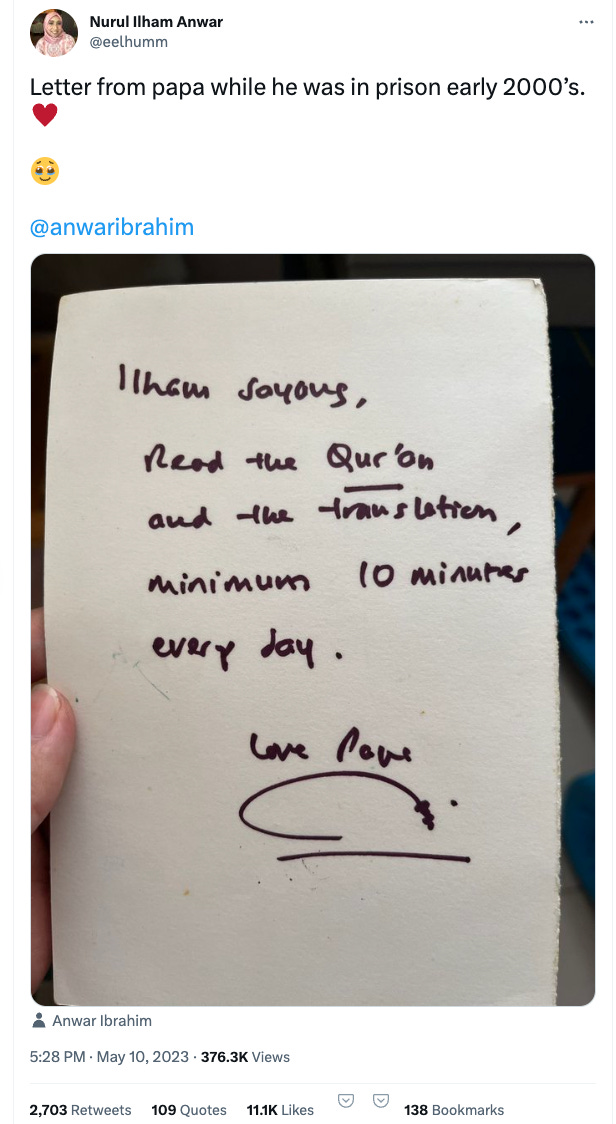 Nurul Ilham Anwar
@eelhumm
Letter from papa while he was in prison early 2000’s.
@anwaribrahim
Ilham sayang,
Read the Qur'an
and the translation,
minimum 10 minutes
every day.
Love Papa
Anwar Ibrahim
5:28 PM · May 10, 2023 · 376.3K Views
2,703 Retweets 109 Quotes 11.1K Likes 138 Bookmarks